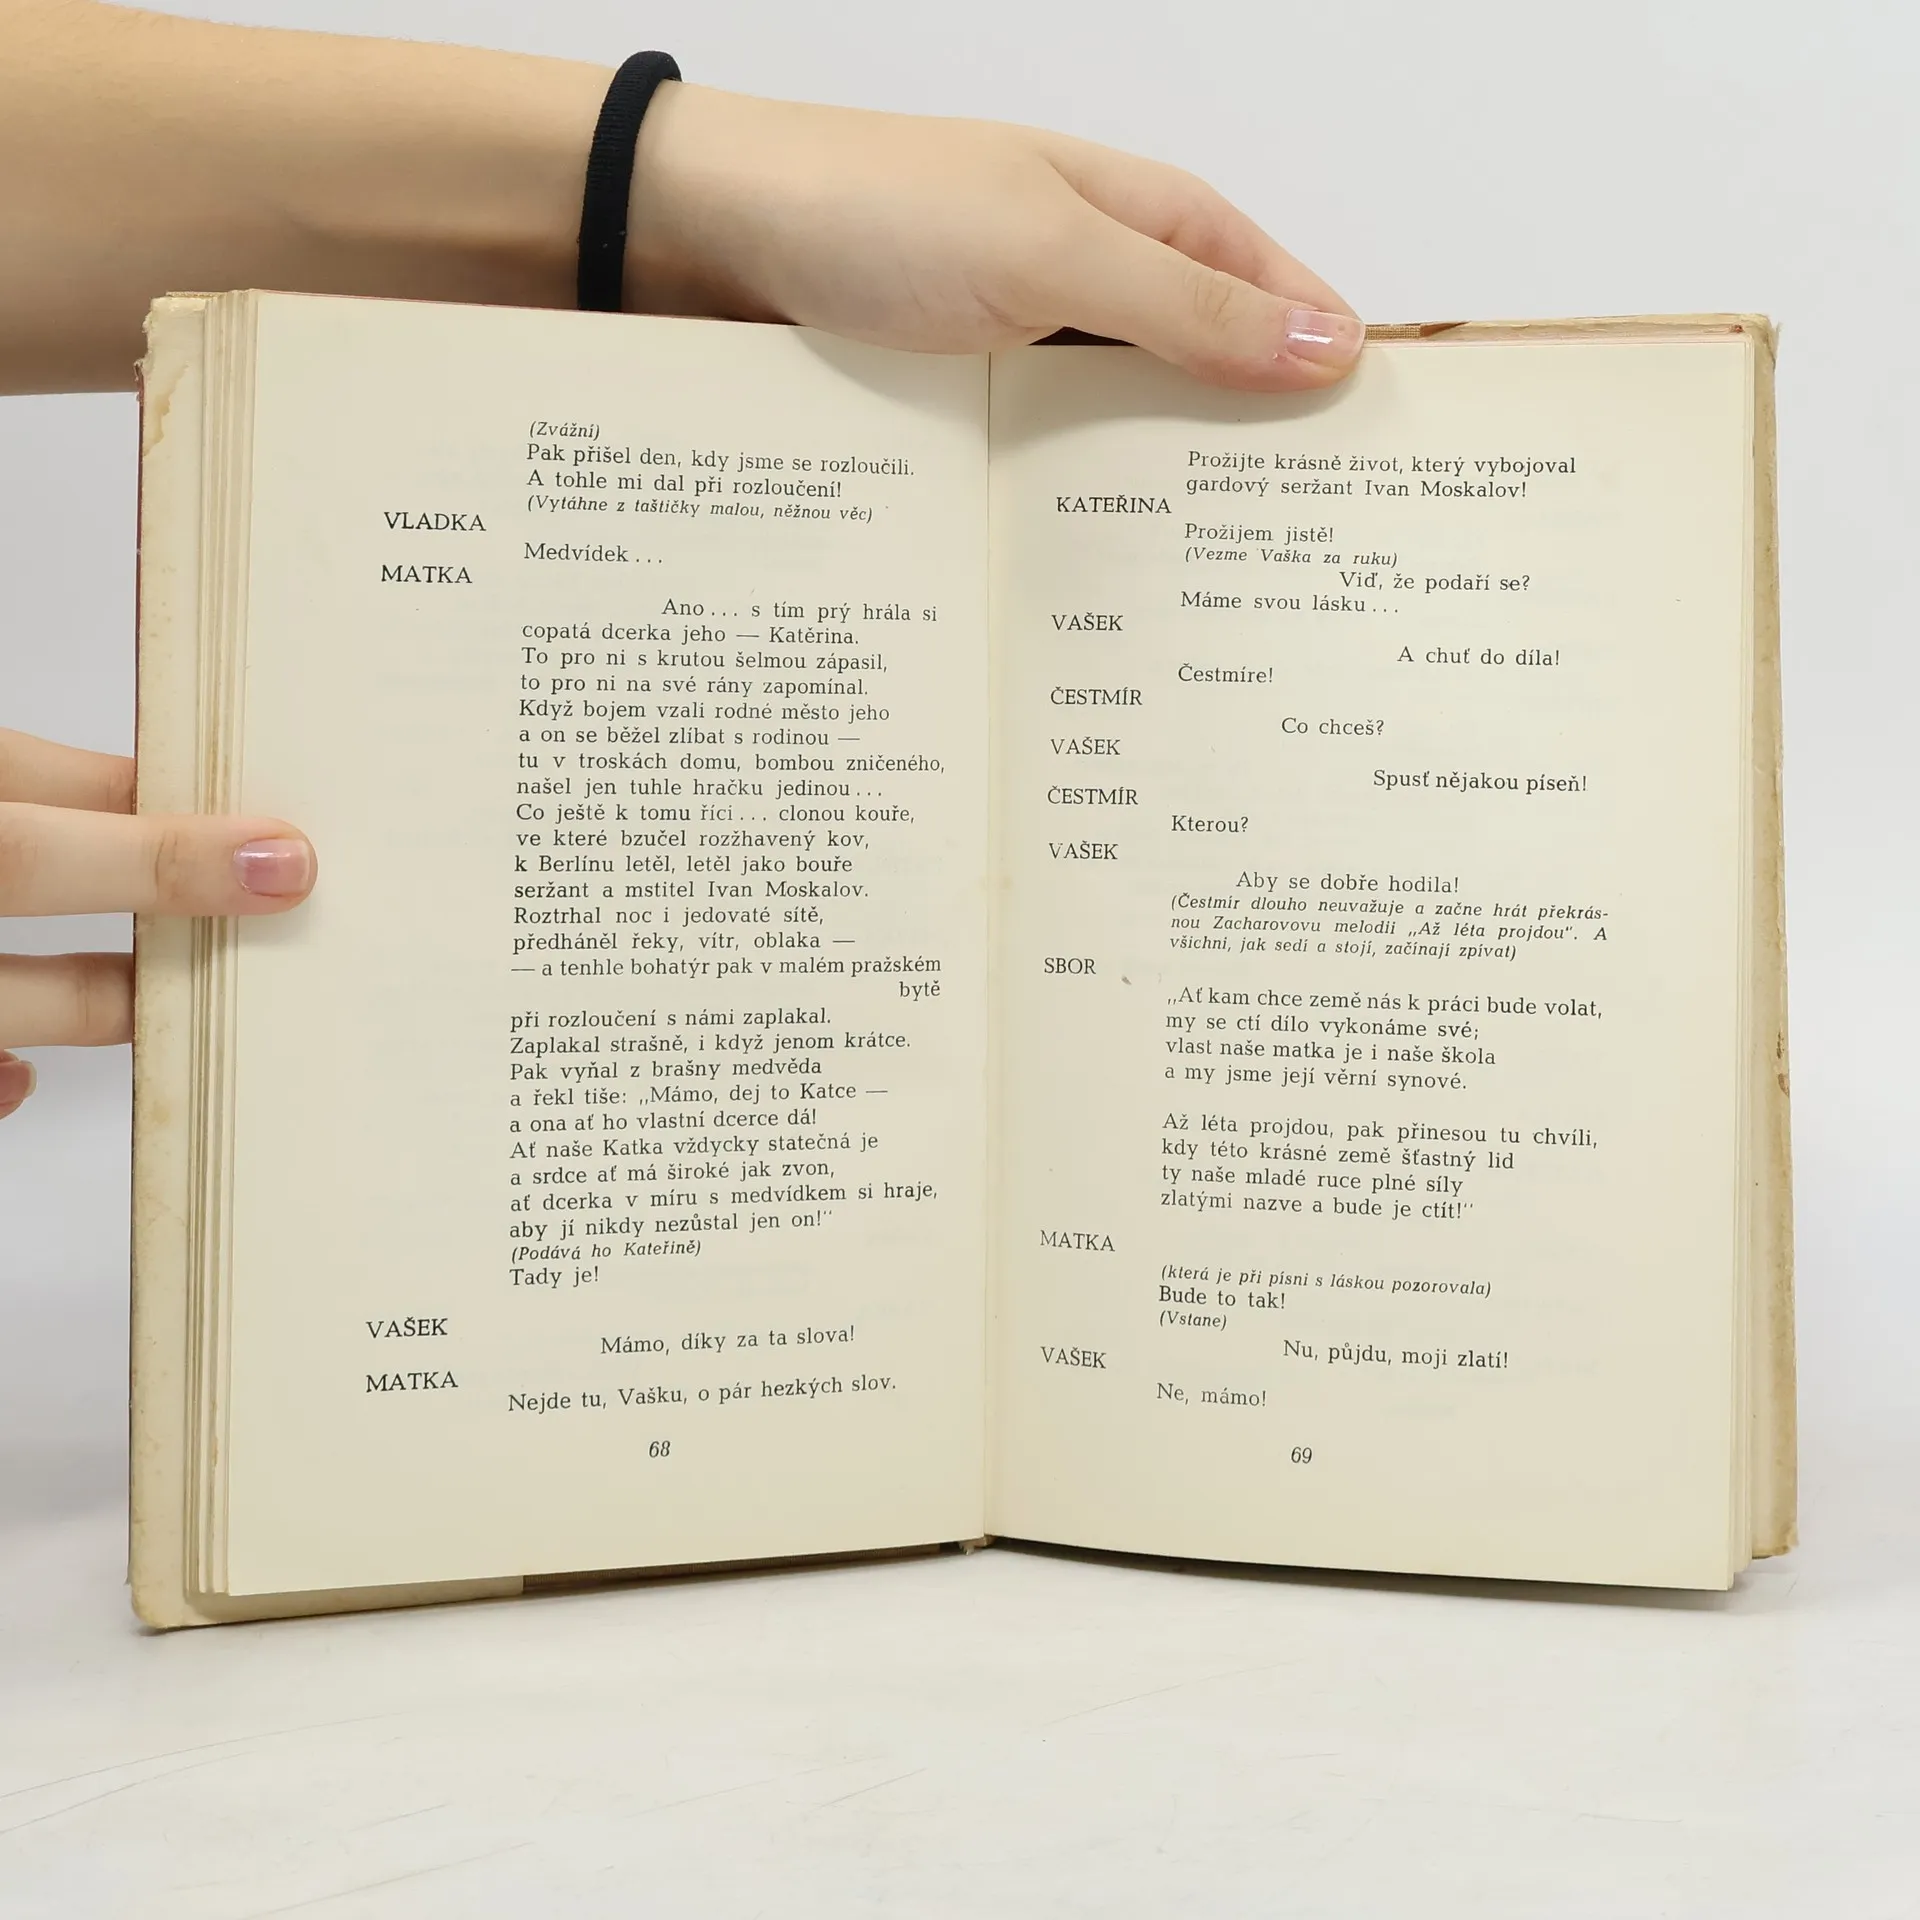 (Zvážní)
Pak přišel den, kdy jsme se rozloučili.
A tohle mi dal při rozloučení!
(Vytáhne z taštičky malou, něžnou věc)
VLADKA
Medvídek...
MATKA
Ano... s tím prý hrála si
copatá dcerka jeho — Katěrina.
To pro ni s krutou šelmou zápasil,
to pro ni na své rány zapomínal.
Když bojem vzali rodné město jeho
a on se běžel zlíbat s rodinou —
tu v troskách domu, bombou zničeného,
našel jen tuhle hračku jedinou...
Co ještě k tomu říci... clonou kouře,
ve které bzučel rozžhavený kov,
k Berlínu letěl, letěl jako bouře
seržant a mstitel Ivan Moskalov.
Roztrhal noc i jedovaté sítě,
předháněl řeky, vítr, oblaka —
— a tenhle bohatýr pak v malém pražském
bytě
při rozloučení s námi zaplakal.
Zaplakal strašně, i když jenom krátce.
Pak vyňal z brašny medvěda
a řekl tiše: „Mámo, dej to Katce —
a ona ať ho vlastní dcerce dá!
Ať naše Katka vždycky statečná je
a srdce ať má široké jak zvon,
ať dcerka v míru s medvídkem si hraje,
aby jí nikdy nezůstal jen on!“
(Podává ho Kateřině)
Tady je!
VAŠEK
Mámo, díky za ta slova!
MATKA
Nejde tu, Vašku, o pár hezkých slov.
68
Prožijte krásně život, který vybojoval
gardový seržant Ivan Moskalov!
KATEŘINA
Prožijem jistě!
(Vezme Vaška za ruku)
Viď, že podaří se?
Máme svou lásku...
VAŠEK
A chuť do díla!
Čestmíre!
ČESTMÍR
Co chceš?
VAŠEK
Spusť nějakou píseň!
ČESTMÍR
Kterou?
VAŠEK
Aby se dobře hodila!
(Čestmír dlouho neuvažuje a začne hrát překrás-
nou Zacharovovu melodii „Až léta projdou“. A
všichni, jak sedí a stojí, začínají zpívat)
SBOR
„Ať kam chce země nás k práci bude volat,
my se ctí dílo vykonáme své;
vlast naše matka je i naše škola
a my jsme její věrní synové.
Až léta projdou, pak přinesou tu chvíli,
kdy této krásné země šťastný lid
ty naše mladé ruce plné síly
zlatými nazve a bude je ctít!“
MATKA
(která je při písni s láskou pozorovala)
Bude to tak!
(Vstane)
Nu, půjdu, moji zlatí!
VAŠEK
Ne, mámo!
69